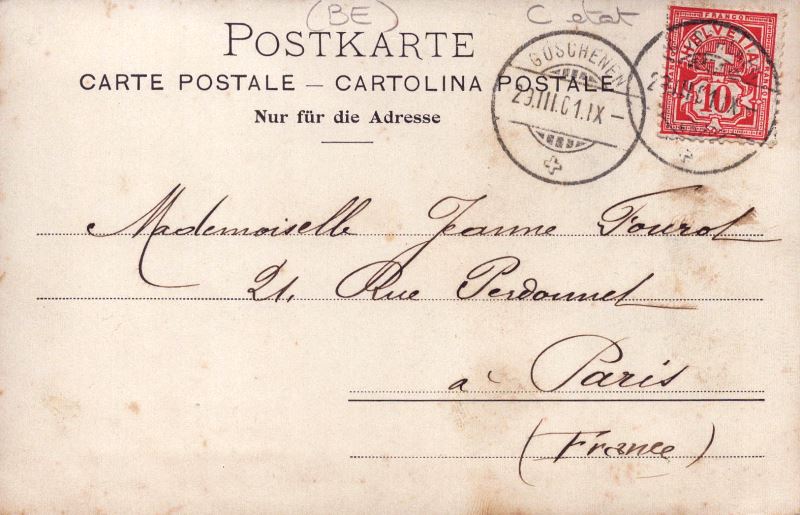 (BE) C etat
POSTKARTE
CARTE POSTALE — CARTOLINA POSTALE
Nur für die Adresse
GÖSCHENEN
29.III.01.IX –
FRANCO
HELVETIA
10
Mademoiselle Jeanne Tourot
21, Rue Perdonnet
à Paris
(France)